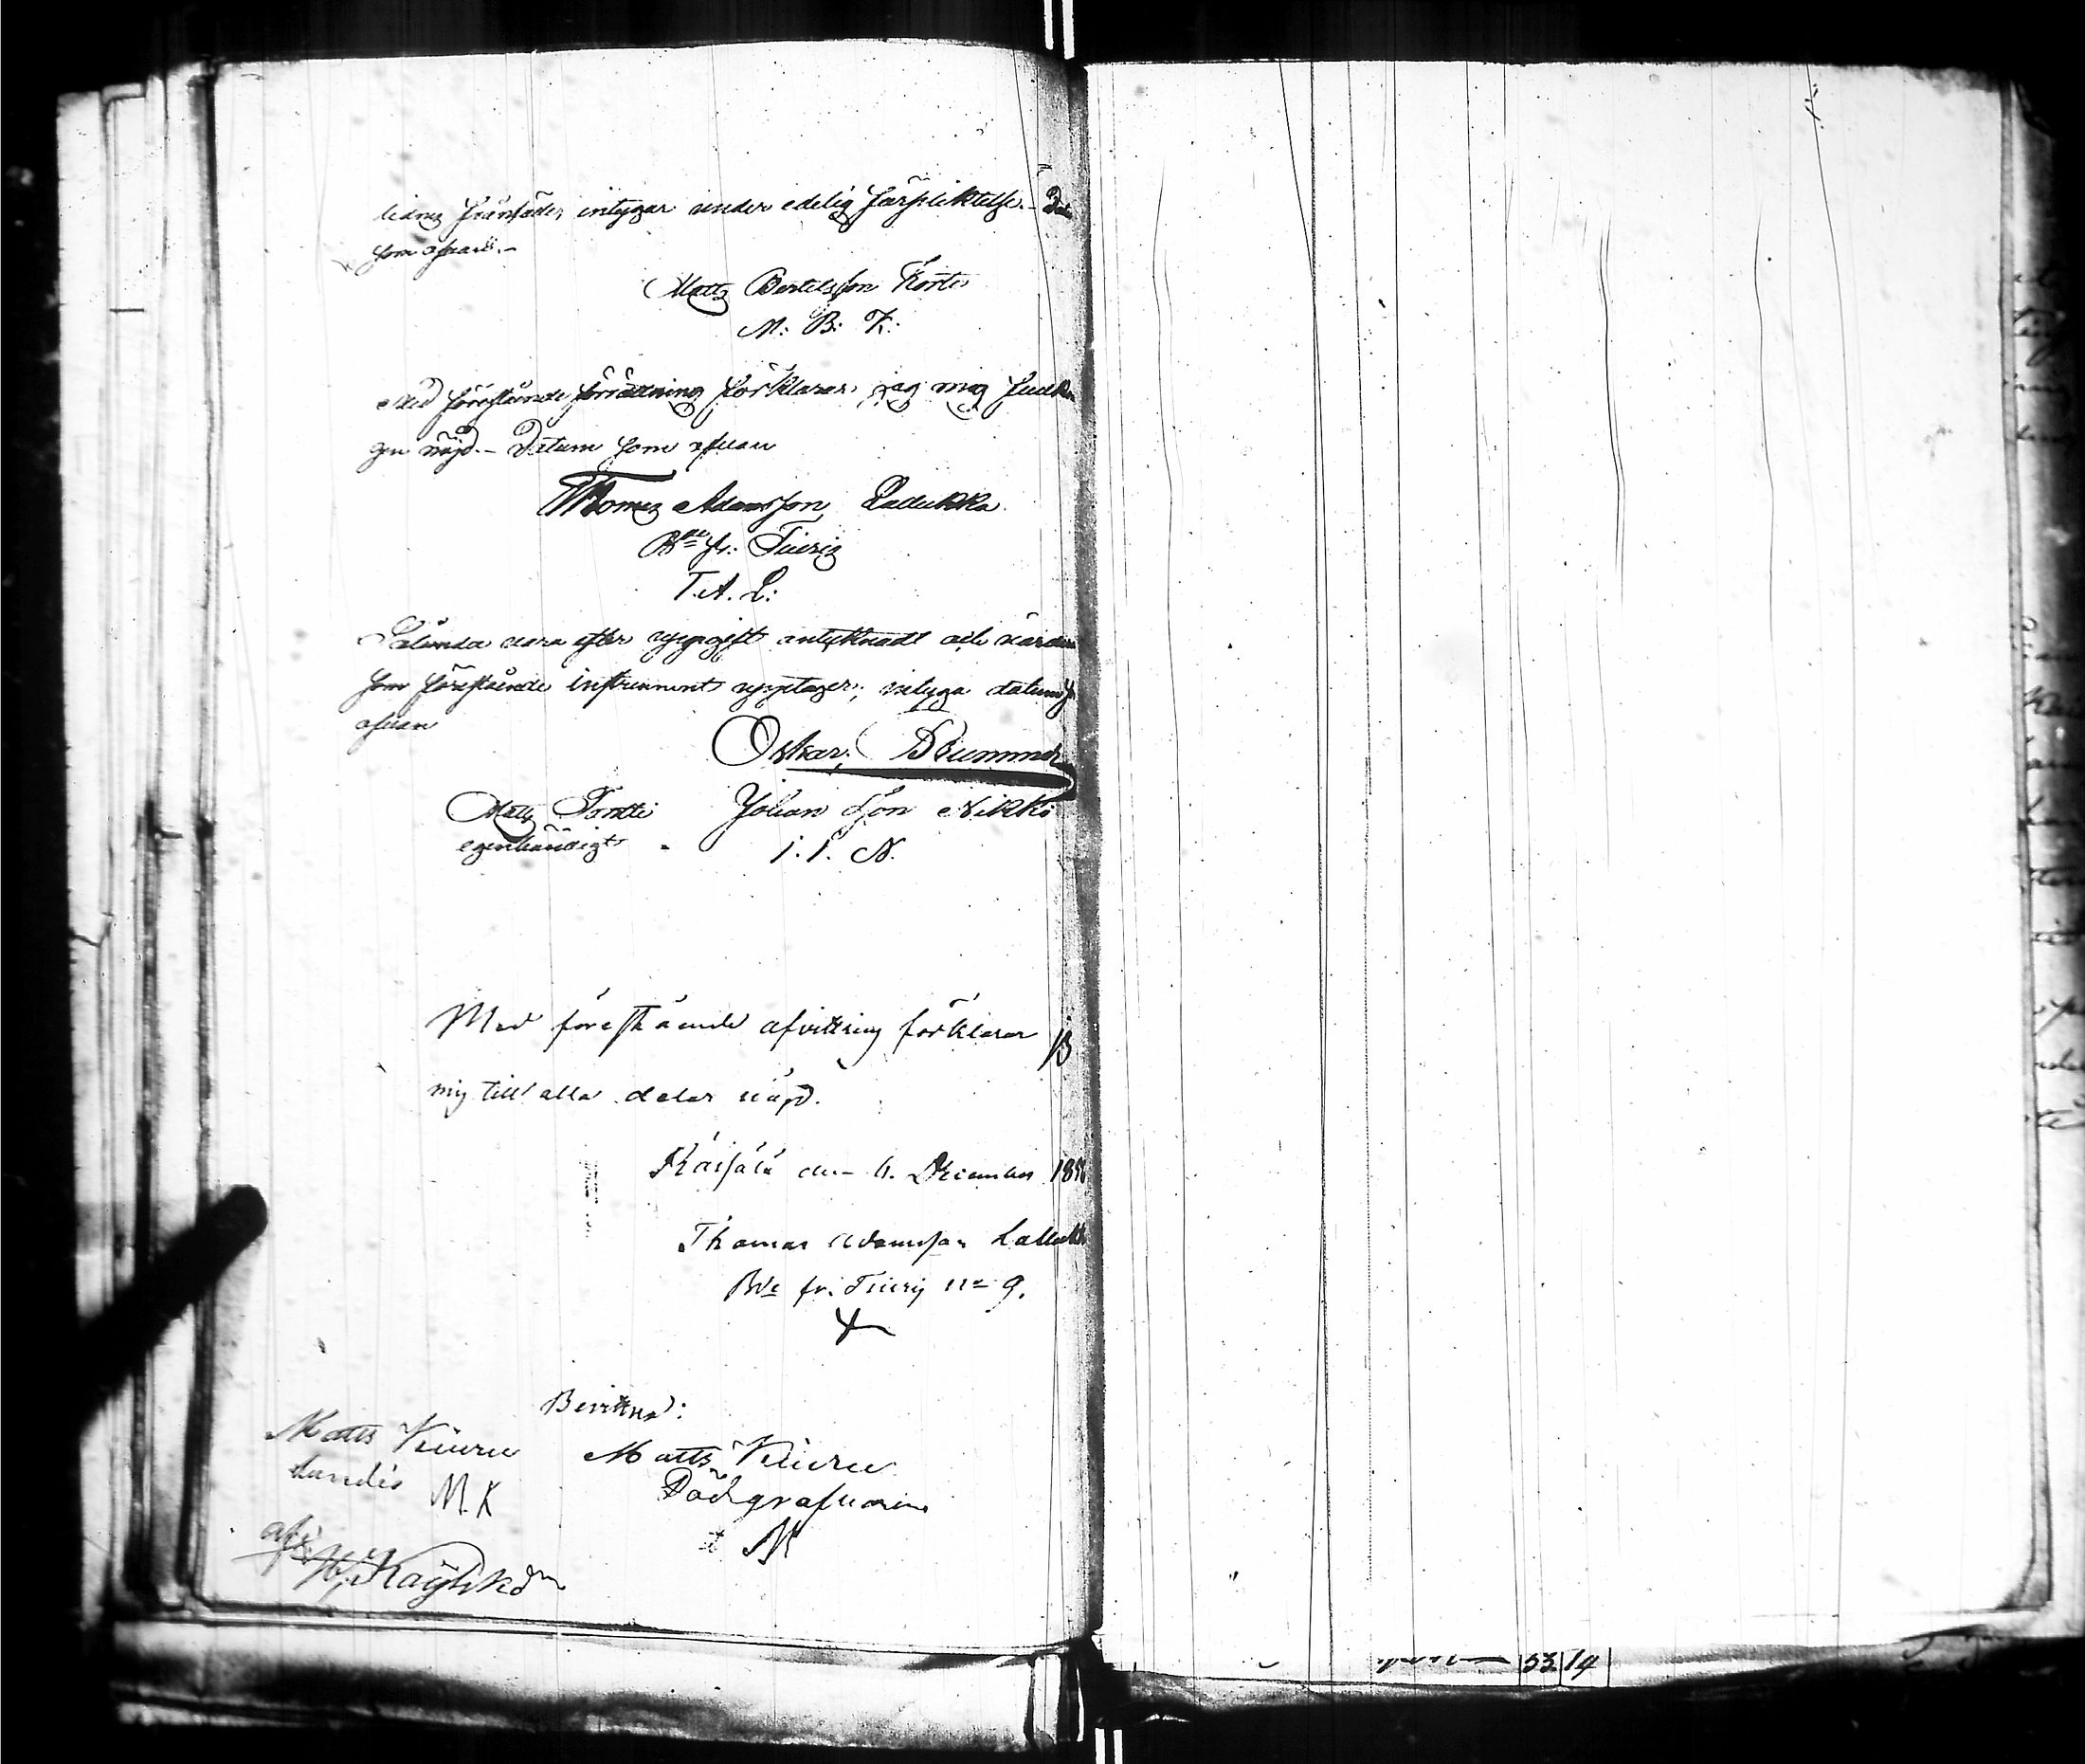 intygar under edelig förpliktelse. – Datum
som ofvan. –
Matts Bertelsson Kortе
M: B: K:
Med förestånde förrättning förklarar jag mig fullko
gen nöjd. – Datum som ofvan
Thomas Adamsson Lallukka
Bde fr: Tiuris
T. A. L:
Sålunda vara efter uppgift antecknadt och värdera
som föreståënde instrument upptager; intyga datum som
ofvan
Oskar Brummer
Matts Tontti Johan Json Nikki
egenhändigt J. J. N.
Med förestående afvittring förklarar
mig till alla delar nöjd.
Räisälä den 6. December 18
Thomas Adamsson Lallukka
Bde fr. Tiuris No 9.
Bevittna:
Matts Kiuru Matts Kiuru
Dödgräfvare
M. K MK
53 14